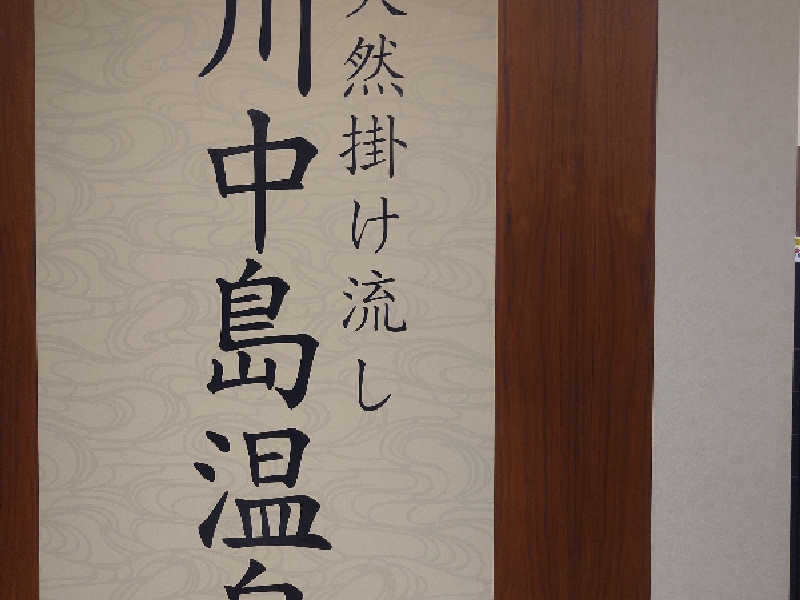 天然掛け流し
川中島温泉